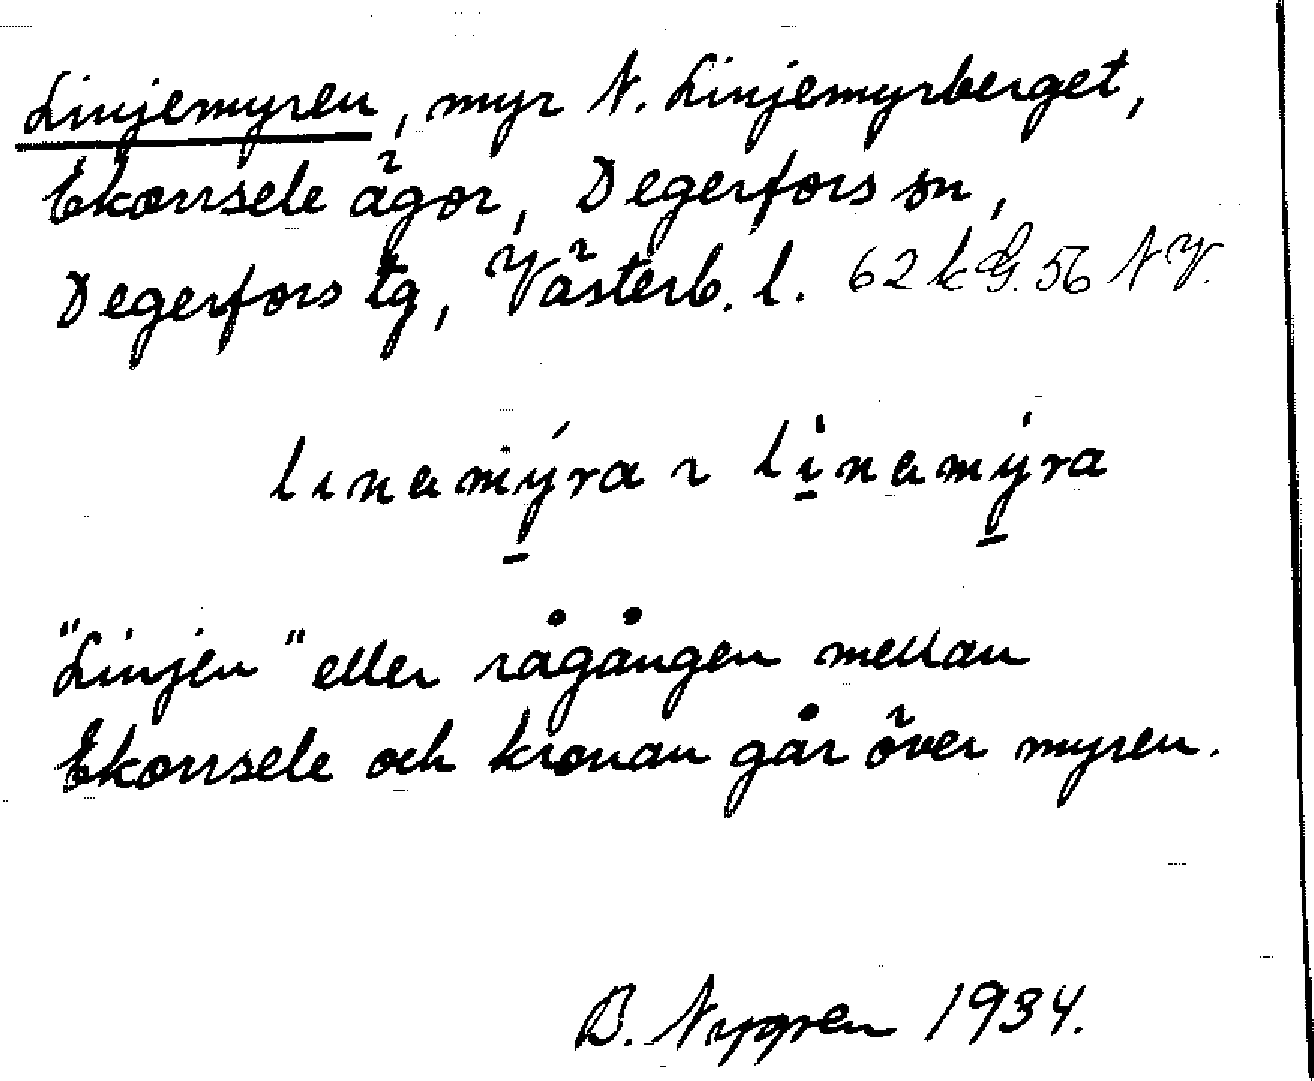 Linjemyren, myr N. Linjemyrberget,
Ekorrsele ägor, Degerfors sn,
Degerfors tg, Västerb. l. 62 k G. 56 NV.
linamýra ~ lìnamýra
"Linjen" eller rågången mellan
Ekorrsele och kronan går över myren.
B. Nygren 1934.